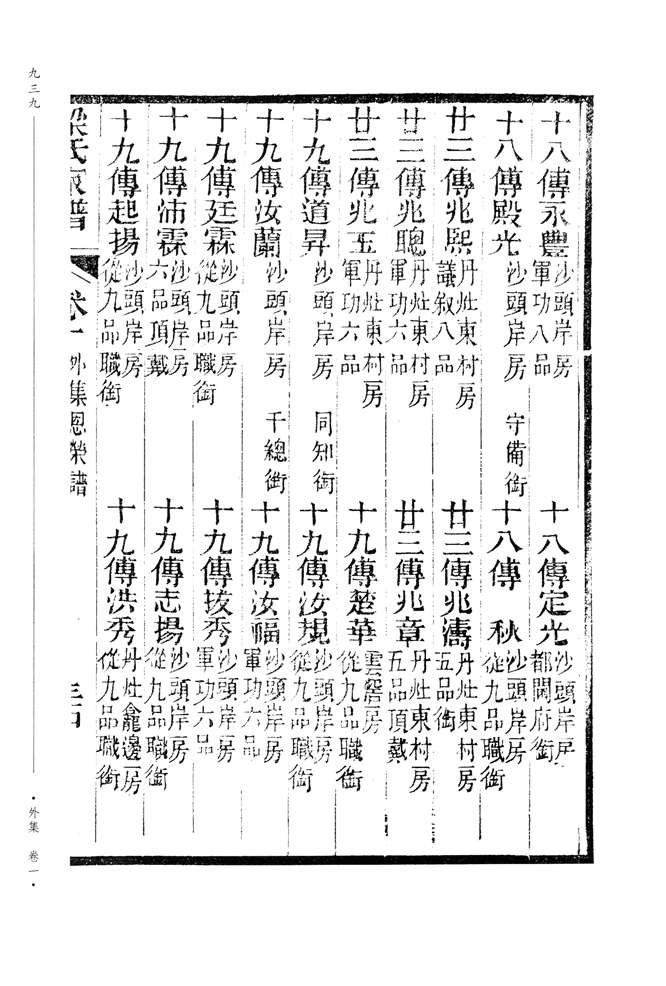 十八傳永豐 沙頭岸房 軍功八品 十八傳定光 沙頭岸房 都閫府銜
十八傳殿光 沙頭岸房 守備銜 十八傳 秋 沙頭岸房 從九品職銜
廿三傳兆熙 丹灶東村房 議敘八品 廿三傳兆濤 丹灶東村房 五品銜
廿三傳兆聰 丹灶東村房 軍功六品 廿三傳兆章 丹灶東村房 五品頂戴
廿三傳兆玉 丹灶東村房 軍功六品 十九傳楚華 雲窖房 從九品職銜
十九傳道昇 沙頭岸房 同知銜 十九傳汝規 沙頭岸房 從九品職銜
十九傳汝蘭 沙頭岸房 千總銜 十九傳汝福 沙頭岸房 軍功六品
十九傳廷霖 沙頭岸房 從九品職銜 十九傳拔秀 沙頭岸房 軍功六品
十九傳沛霖 沙頭岸房 六品頂戴 十九傳志揚 沙頭岸房 從九品職銜
十九傳起揚 沙頭岸房 從九品職銜 十九傳洪秀 丹灶龕邊房 從九品職銜
梁氏家譜 卷一 外集恩榮譜 三四
九三九
·外集 卷一·